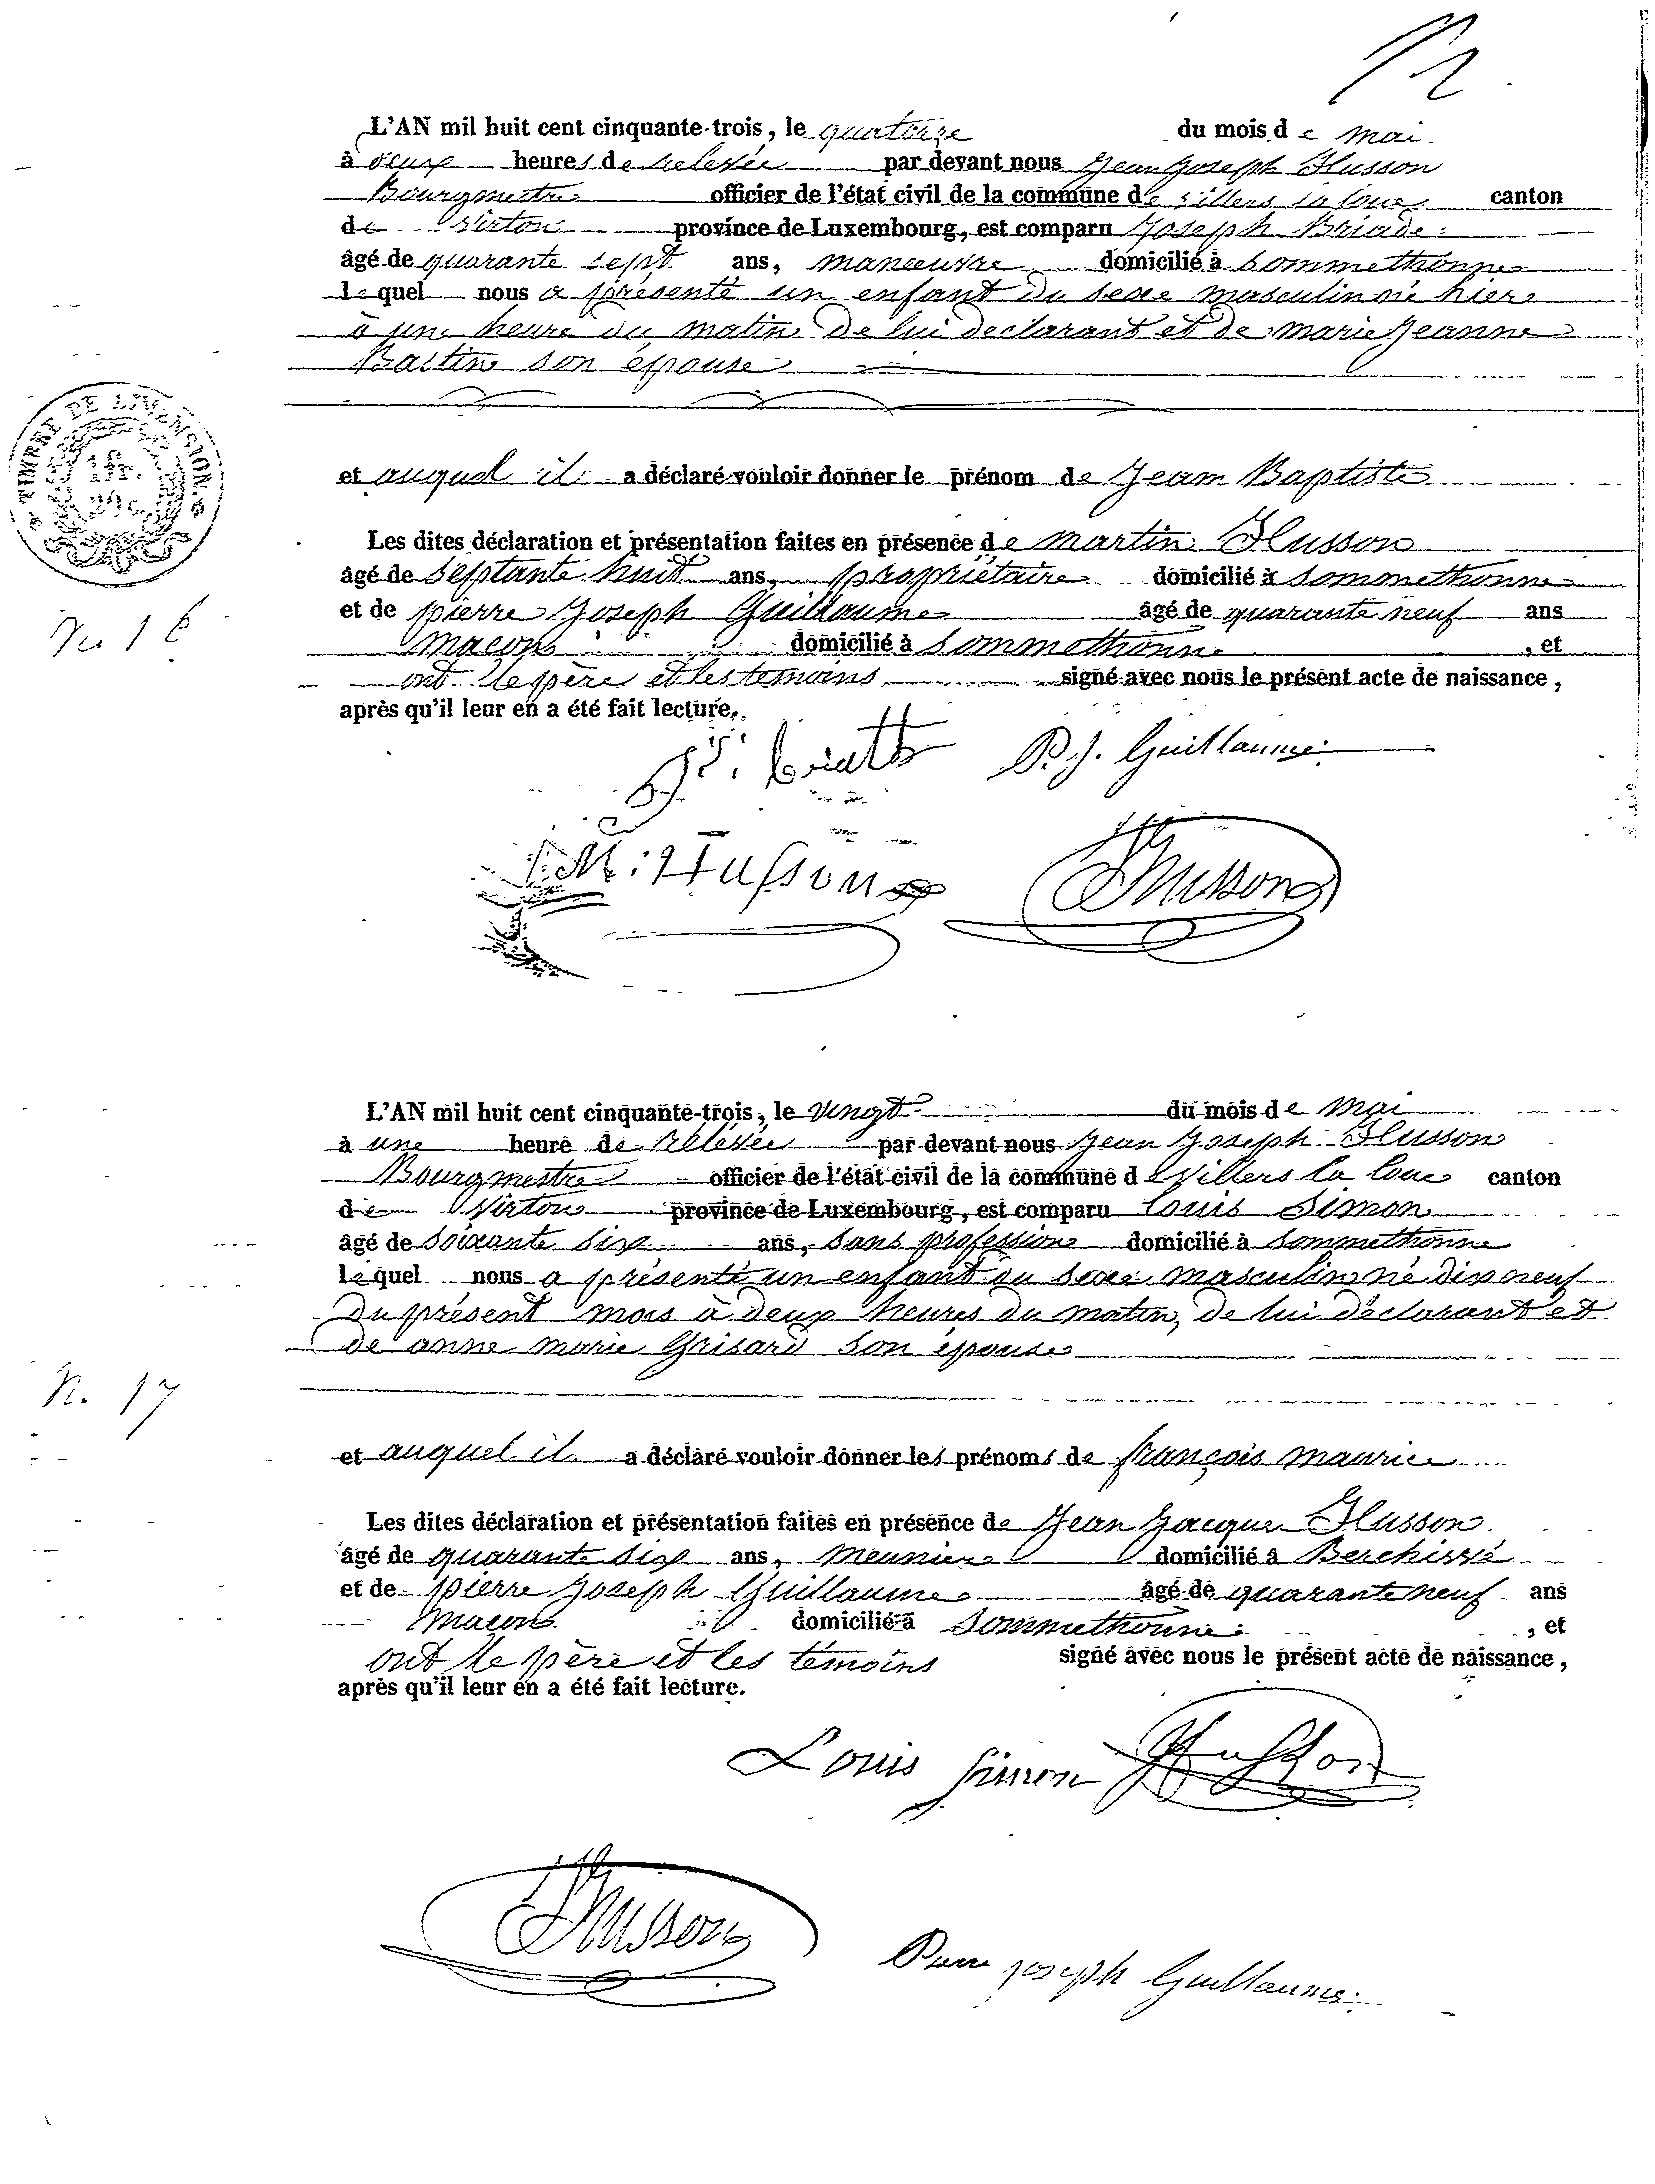 L'AN mil huit cent cinquante-trois, le quatorze du mois de mai
à deux heures de relevée par devant nous Jean Joseph Husson
Bourgmestre officier de l'état civil de la commune de villers la loue canton
de Virton province de Luxembourg, est comparu Joseph
âgé de quarante sept ans, manoeuvre domicilié à Sommethonne
lequel nous a présenté un enfant du sexe masculin né hier
à une heure du matin de lui déclarant et de marie Jeanne
Bastin son épouse
TIMBRE DE DIMENSION.
et auquel il a déclaré vouloir donner le prénom de Jean Baptiste
Les dites déclaration et présentation faites en présence de martin Husson
âgé de septante huit ans, propriétaire domicilié à Sommethonne
et de pierre Joseph Guillaume âgé de quarante neuf ans
No 16
macon domicilié à Sommethonne, et
ont le père et les temoins signé avec nous le présent acte de naissance,
après qu'il leur en a été fait lecture.
P. J. Guillaume
M: Husson Husson
L'AN mil huit cent cinquante-trois, le vingt du mois de mai
à une heure de relevée par devant nous Jean Joseph Husson
Bourgmestre officier de l'état civil de la commune de Villers la loue canton
de Virton province de Luxembourg, est comparu Louis Simon
âgé de soixante six ans, sans profession domicilié à Sommethonne
lequel nous a présenté un enfant du sexe masculin né dix neuf
du présent mois à deux heures du matin, de lui déclarant et
de anne marie Grisard son épouse
N. 17
et auquel il a déclaré vouloir donner les prénoms de françois maurice
Les dites déclaration et présentation faites en présence de Jean Jacques Husson
âgé de quarante six ans, meunier domicilié à Berchivé
et de pierre Joseph Guillaume âgé de quarante neuf ans
macon domicilié à Sommethonne, et
ont le père et les témoins signé avec nous le présent acte de naissance,
après qu'il leur en a été fait lecture.
Louis Simon Husson
Husson
Pierre Joseph Guillaume